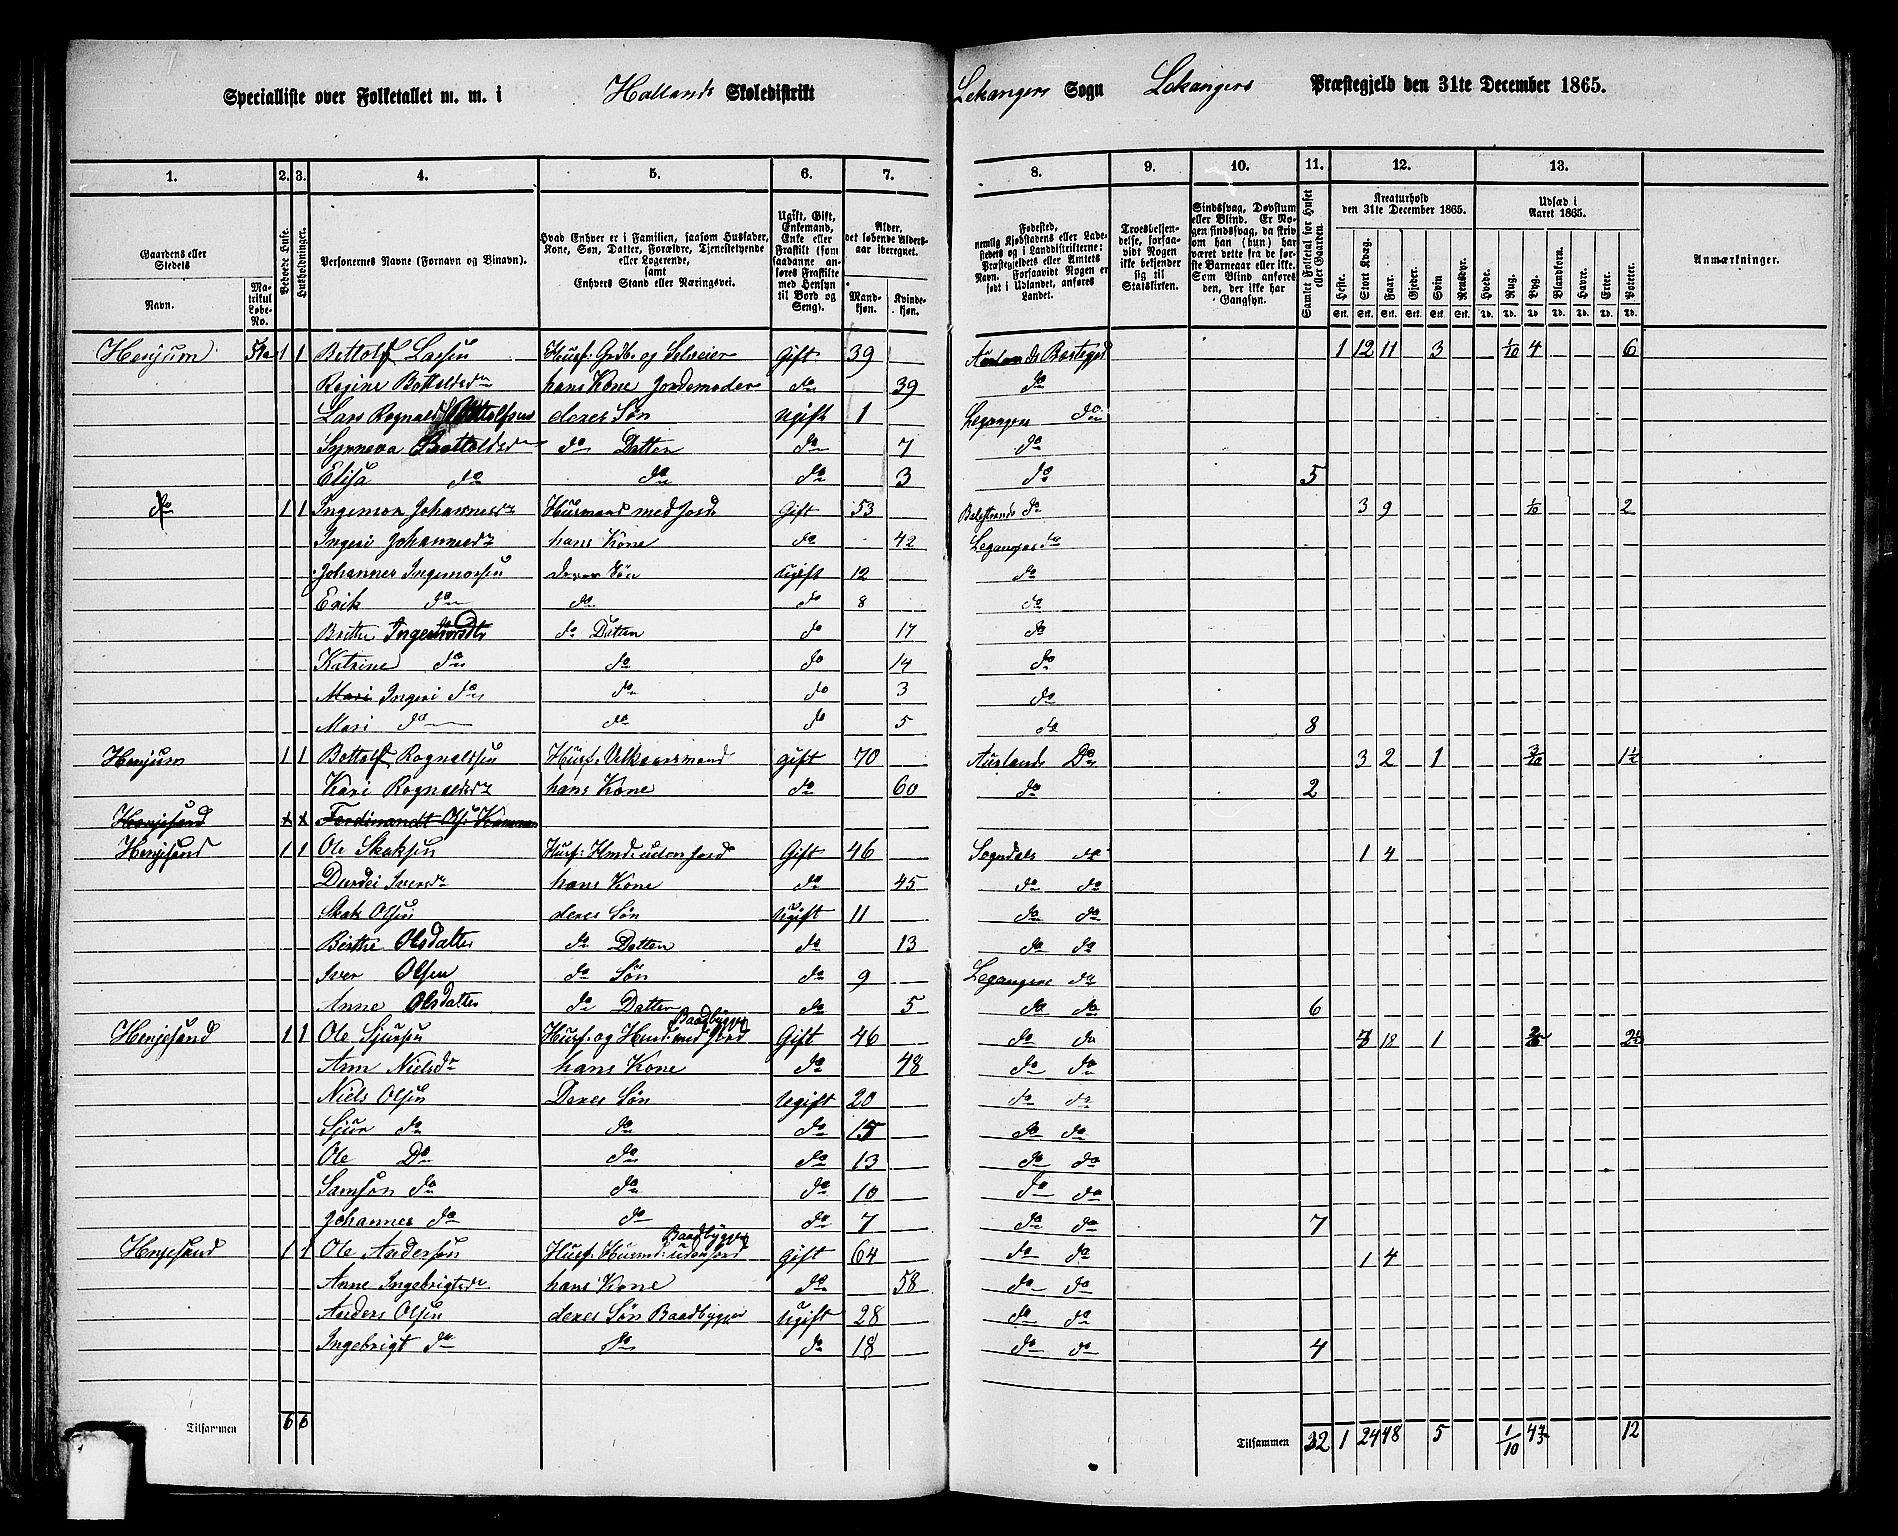 Specialliste over Folketallet m. m. i Hallands Skoledistrikt Lekangers Sogn Lekangers Præstegjeld den 31te December 1865.
1. 2. 3. 4. 5. 6. 7. 8. 9. 10. 11. 12. 13.
Gaardens eller Stedets Navn. Matrikul Løbe-No. Beboede Huse. Husholdninger. Personernes Navne (Fornavn og Binavn). Hvad Enhver er i Familien, saasom Husfader, Kone, Søn, Datter, Forældre, Tjenestetyende eller Logerende, samt Enhvers Stand eller Næringsvei. Ugift, Gift, Enkemand, Enke eller Fraskilt (som saadanne anføres Fraskilte med Hensyn til Bord og Seng). Alder, det løbende Aldersaar iberegnet. Mandkjøn. Kvindekjøn.
Fødested, nemlig Kjøbstadens eller Ladestedets og i Landdistrikterne: Præstegjeldets eller Amtets Navn. Forsaavidt Nogen er født i Udlandet, anføres Landet. Troesbekjendelse, forsaavidt Nogen ikke bekjender sig til Statskirken. Sindssvag, Døvstum eller Blind. Er Nogen sindssvag, da skriv om han (hun) har været dette fra de første Barneaar eller ikke. Som Blind anføres den, der ikke har Gangsyn. Samlet Folketal for Huset eller Gaarden. Kreaturhold den 31te December 1865. Heste. Stort Kvæg. Faar. Gjeder. Svin. Rensdyr. Udsæd i Aaret 1865. Hvede. Rug. Byg. Blandkorn. Havre. Erter. Poteter. Anmærkninger.
Henjum 51a 1 1 Bottolf Larsen Husf: Grdb. og Selveier Gift 39 Præstegjd 1 12 11 3 1/10 4 6
Bottolfsdr hans Kone Jordemoder do 39 do
Lars Rognald Bottolfsen deres Søn Ugift 1 Leganger do
Synneva Bottolfsdr do Datter do 7 do
Elisa do do do 3 do 5
do 1 1 Ingemor Johannesdr Husmand med Jord Gift 53 Balestrands do 3 9 1/10 2
Ingeri Johannesdr hans Kone do 42 Leganger do
Johannes Ingemorsen deres Søn Ugift 12 do
Erik do do do 8 do
Brithe Ingemorsdtr do Datter do 17 do
Katrine do do do 14 do
Mari Ingeri do do do 3 do
Mari do do do 5 do 8
Henjum 1 1 Bottolf Rognaldsen Husf: Vilkaarsmand gift 70 Aurlands Do 3 2 1 3/10 1½
Kari Rognaldsdr hans Kone do 60 do 2
Henjesand x x Ferdinandt Ols:
Henjesand 1 1 Ole Skaksen Husf: Hmd: uden Jord Gift 46 Sogndals do 1 4
Durdei Iversdr hans Kone do 45 do do
Skak Olsen deres Søn Ugift 11 do do
Birthe Olsdatter do Datter do 13 do do
Iver Olsen do Søn do 9 Legangers do
Anne Olsdatter do Datter do 5 do do 6
Henjesand 1 1 Ole Sjursen Husf: og Hmd: med Jord Baadbygger Gift 46 do do 18 1
Ann Nielsdr hans Kone do 48 do do
Niels Olsen Deres Søn Ugift 20 do do
Sjur do do do 15 do do
Ole Do do do 13 do do
Samson do do do 10 do do
Johannes do do do 7 do do 7
Henjesand 1 1 Ole Anderson Husf: Husmd: uden Jord Baadbygger gift 64 do do 1 4
Anne Ingebrigtsdr hans Kone do 58 do do
Anders Olsen deres Søn Baadbygger Ugift 28 do do
Ingebrigt do do do 18 do do 4
Tilsammen 6 6 Tilsammen 32 1 24 48 5 1/10 12